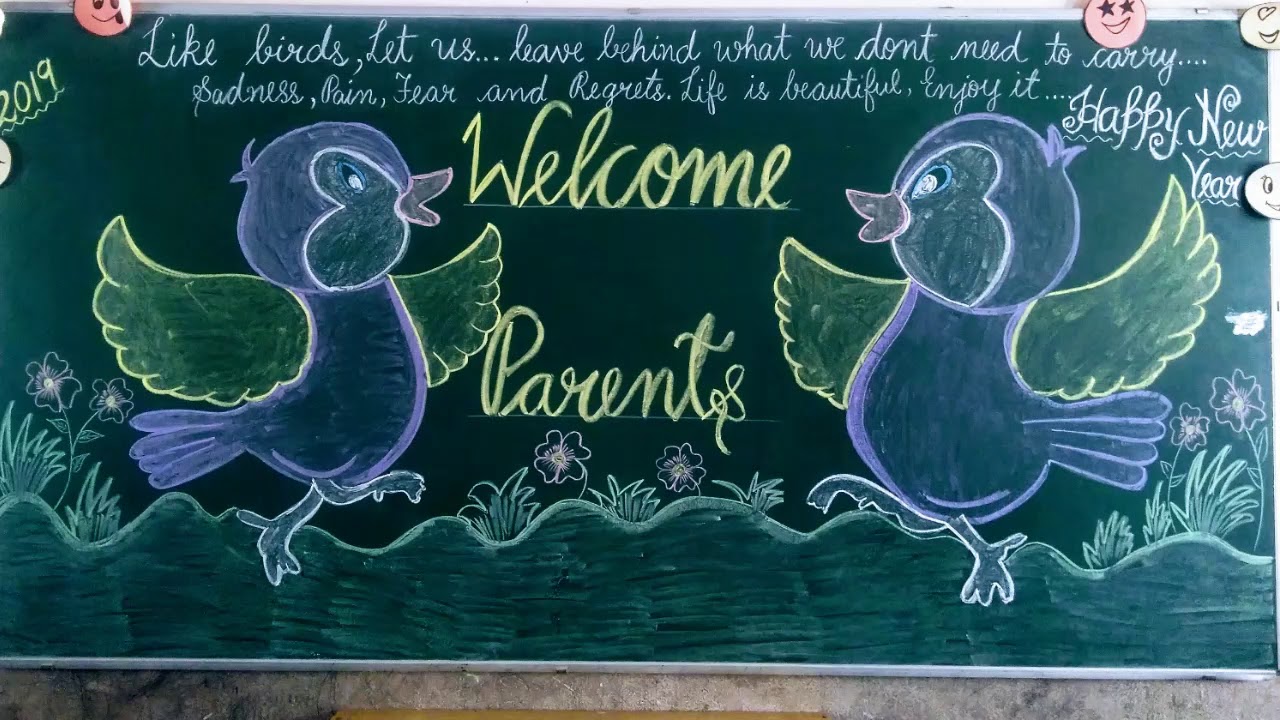 Like birds, Let us... leave behind what we dont need to carry....
Sadness, Pain, Fear and Regrets. Life is beautiful, Enjoy it....
2019
Happy New
Year
Welcome
Parents